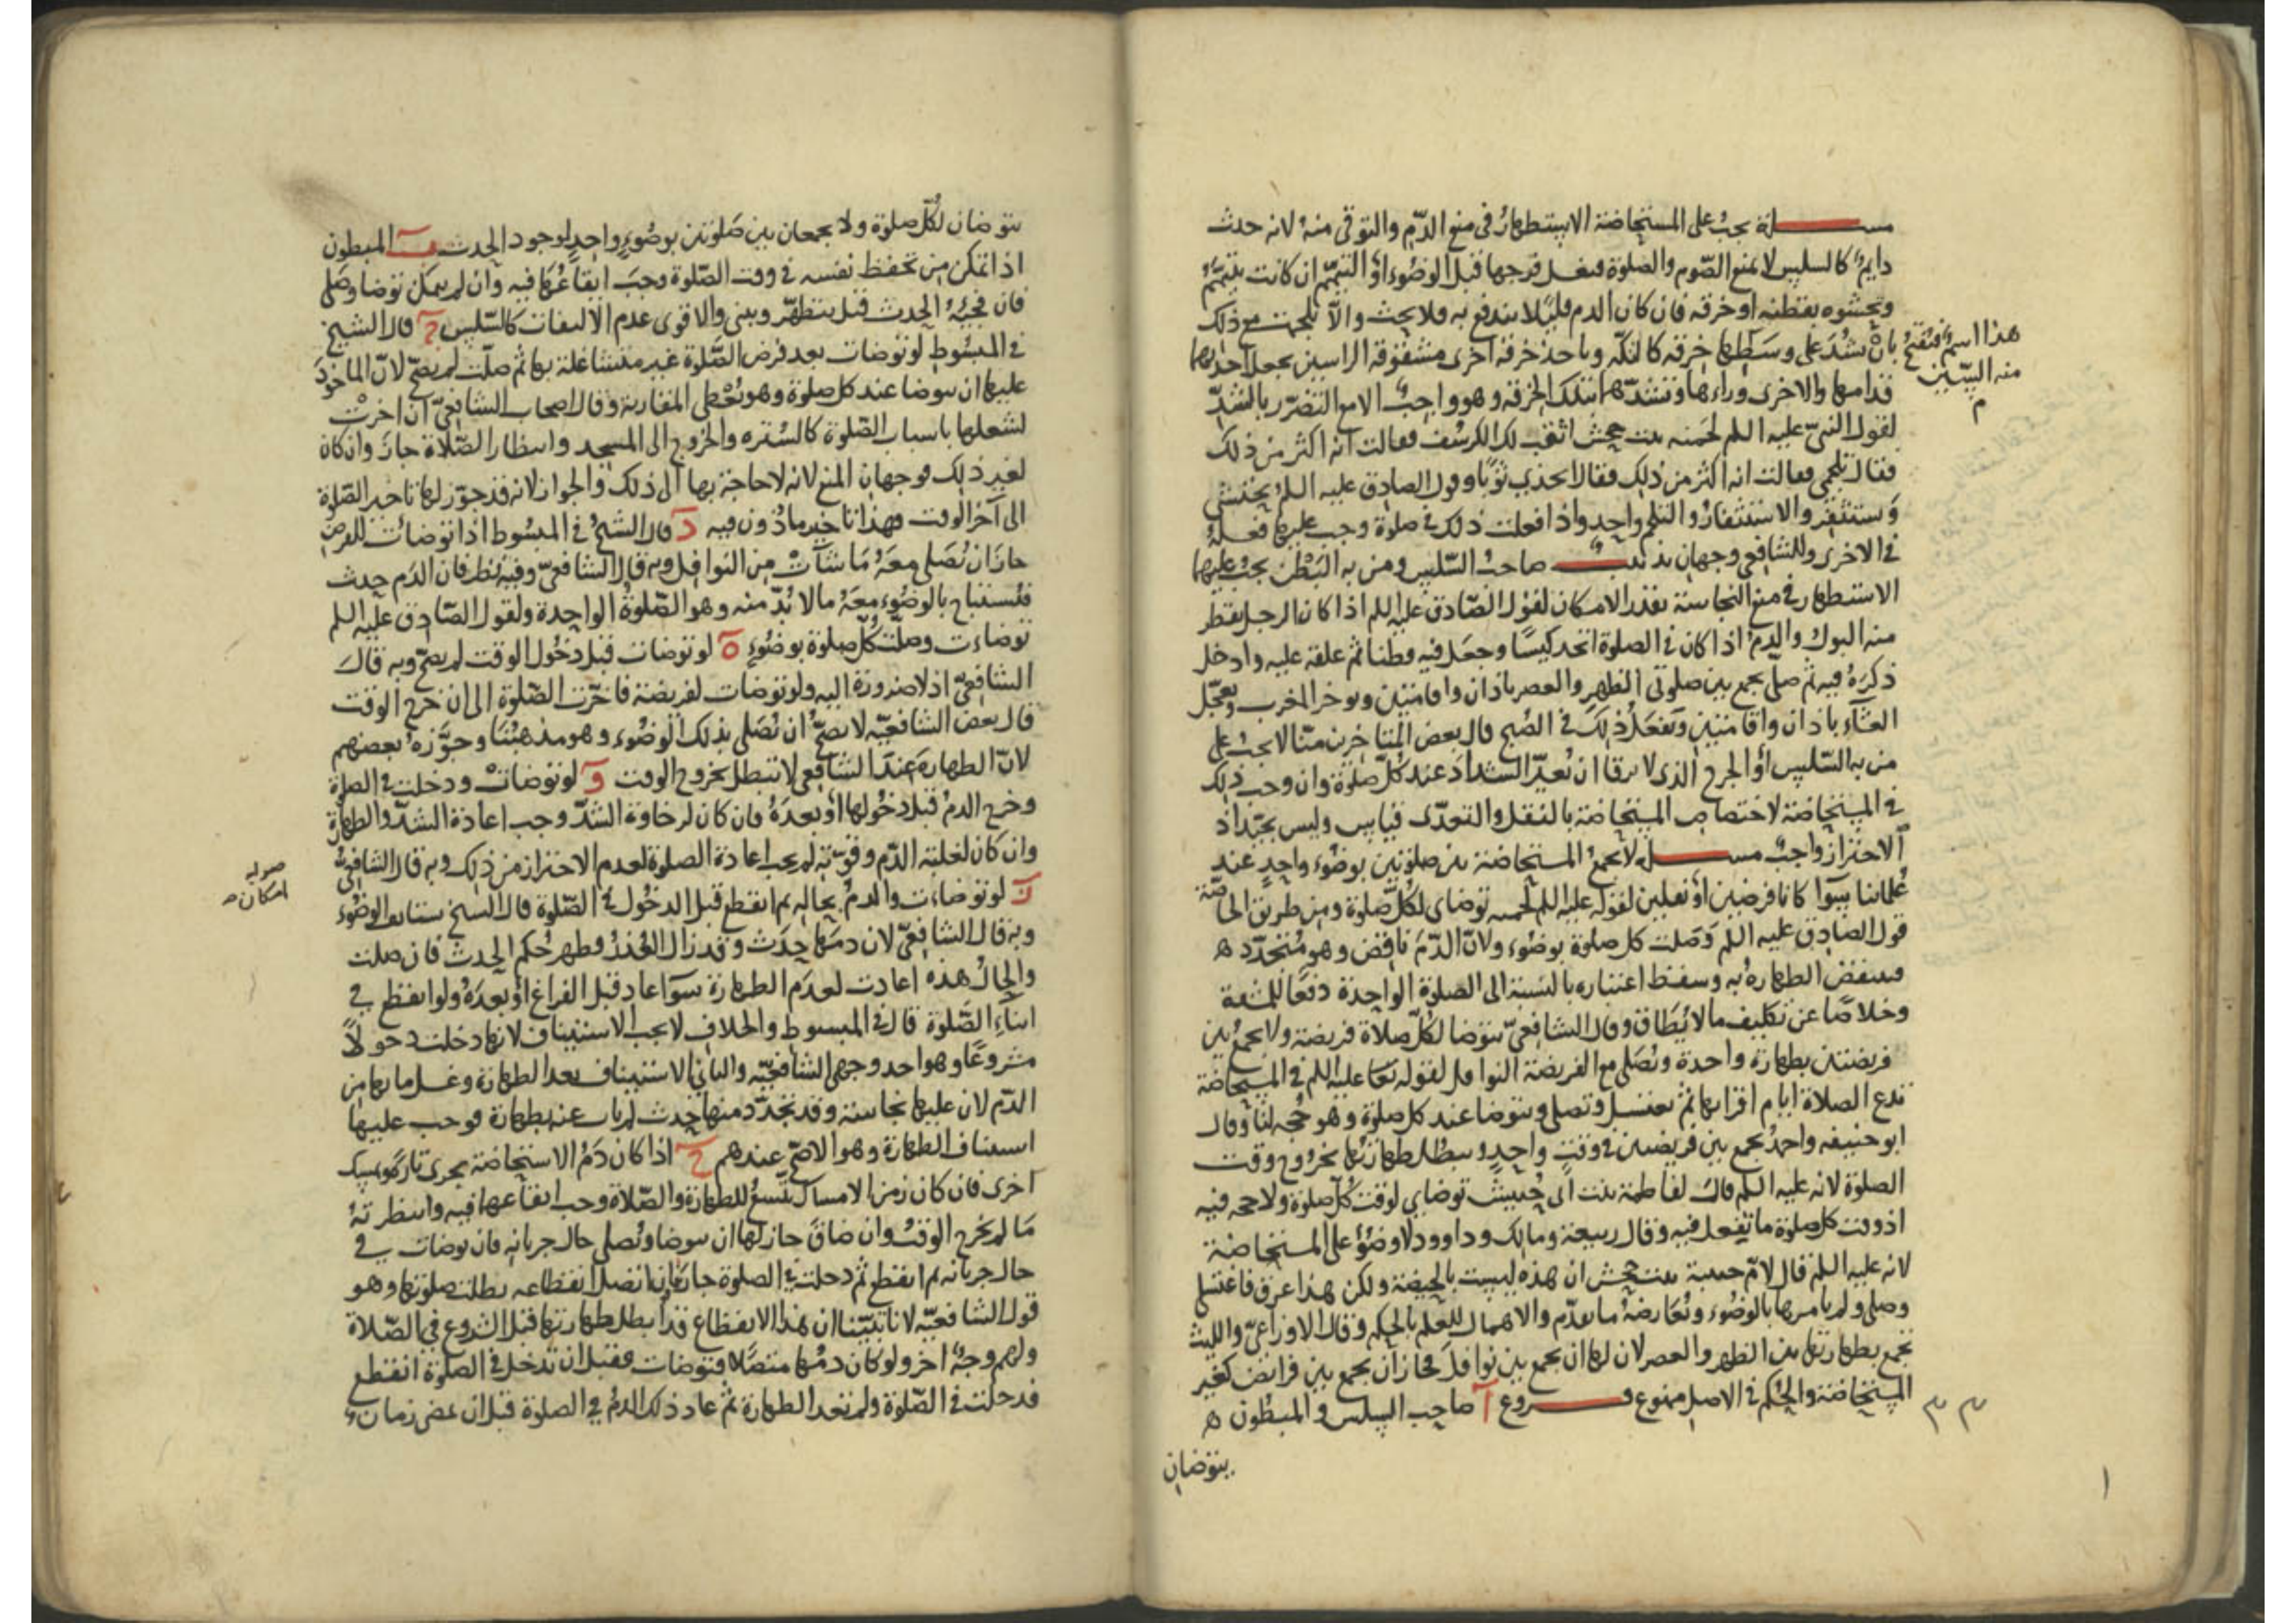 مسئلة يجب على المستحاضة الاستظهار في منع الدّم والتوقي منه لانه حدث
دايم كالسلس لا يمنع الصّوم والصلوة فتغسل فرجها قبل الوضوء او التيمّم ان كانت تتيمّم
وتحشوه بقطنه او خرقه فان كان الدم قليلا يندفع به فلا بحث والّا تلجمت مع ذلك
بان تشد على وسطها خرقه كالتكّه وتاخذ خرقه اخرى مشقوقه الراسين تجعل احديهما
هذا اسم فتفتح
منه السين
م
قدامها والاخرى وراءها وتشدّهما بتلك الخرقه وهو واجب الا مع التضرّر بالشدّ
لقول النبيّ عليه السلم لحمنه بنت جحش انعت لك الكرسف فقالت انه اكثر من ذلك
فقال تلجمي فقالت انه اكثر من ذلك فقال اتخذي ثوبًا وقول الصادق عليه السلم تحتشي
وتستثفر والاستثفار والتلجم واحد واذا فعلت ذلك في صلوة وجب عليها فعله
في الاخرى وللشافعي وجهان تذنيب صاحب السّلس ومن به البطن يجب عليهما
الاستظهار في منع النجاسة بقدر الامكان لقول الصّادق عليه السلم اذا كان الرجل يقطر
منه البول والدم اذا كان في الصلوة اتخذ كيسًا وجعل فيه قطنا ثم علقه عليه وادخل
ذكره فيه ثم صلّى يجمع بين صلوتي الظهر والعصر باذان واقامتين ويوخر المغرب ويعجّل
العشاء باذان واقامتين ويفعل ذلك في الصبح قال بعض المتاخرين منّا لا يجب على
من به السّلس او الجرح الذى لا يرقا ان يُعيد الشداد عند كلّ صلوة وان وجب ذلك
في المستحاضة لاختصاص المستحاضة بالنقل والتعدّى قياس وليس بجيّد اذ
الاحتراز واجب مسئلة لا تجمع المستحاضة بين صلوتين بوضوء واحد عند
علمائنا سوآ كانا فرضين او نفلين لقوله عليه السلم لحمنه توضاى لكل صلوة ومن طريق الخاصّة
قول الصادق عليه السلم وصلت كل صلوة بوضوء ولان الدّم ناقض وهو متجدّد ه
فتنتقض الطهارة به وسقط اعتباره بالنسبة الى الصلوة الواحدة دفعًا للمشقة
وخلاصًا عن تكليف ما لا يُطاق وقال الشافعيّ تتوضا لكلّ صلاة فريضة ولا تجمع بين
فريضتين بطهارة واحدة وتصلى مع الفريضة النوافل لقوله عليه السلم في المستحاضة
تدع الصلاة ايام اقرايها ثم تغتسل وتصلي وتتوضا عند كل صلوة وهو حجه لنا وقال
ابو حنيفه واحمد يجمع بين فريضتين في وقت واحد وتبطل طهارتها بخروج وقت
الصلوة لانه عليه السلم قال لفاطمة بنت ابى حبيش توضاى لوقت كل صلوة ولا حجه فيه
اذ وقت كل صلوة ما تفعل فيه وقال ربيعة ومالك وداوود لا وضوء على المستحاضة
لانه عليه السلم قال لامّ حبيبة بنت جحش ان هذه ليست بالحيضة ولكن هذا عرق فاغتسلى
وصلى ولم يامرها بالوضوء وتعارضه ما تقدّم والاهمال للعلم بالحكم وقال الاوزاعيّ والليث
تجمع بطهارتها بين الظهر والعصر لان لها ان تجمع بين نوافل فجاز ان تجمع بين فرايض كغير
المستحاضة والحكم في الاصل ممنوع فروع آ صاحب السلس والمبطون ه
يتوضان
يتوضان لكلّ صلوة ولا يجمعان بين صلوتين بوضوء واحد لوجود الحدث ب المبطون
اذا تمكن من تحفظ نفسه في وقت الصّلوة وجب ايقاعها فيه وان لم يمكن توضا وصلى
فان فجئه الحدث قيل يتطهّر ويبني والاقوى عدم الالتفات كالسّلس ج قال الشيخ
في المبسوط لو توضات بعد فرض الصّلوة غير متشاغلة بها ثم صلّت لم يصحّ لانّ الماخوذ
عليها ان تتوضا عند كل صلوة وهو تُعطى المقارنة وقال اصحاب الشافعيّ ان اخرت
لشغلها باسباب الصّلوة كالستره والخروج الى المسجد وانتظار الصّلاة جاز وان كان
لغير ذلك فوجهان المنع لانه لا حاجة بها الى ذلك والجواز لانه قد جوّز لها تاخير الصّلوة
الى آخر الوقت فهذا تاخير ماذون فيه د قال الشيخ في المبسوط اذا توضات للفرض
جاز ان تُصلي معه ما شآت من النوافل وبه قال الشافعيّ وفيه نظر فان الدّم حدث
فتستباح بالوضوء معه ما لا بدّ منه وهو الصّلوة الواحدة ولقول الصّادق عليه السلم
توضات وصلّت كلّ صلوة بوضوء ه لو توضات قبل دخول الوقت لم يصحّ وبه قال
الشافعيّ اذ لا ضرورة اليه ولو توضات لفريضة فاخّرت الصّلوة الى ان خرج الوقت
قال بعض الشافعيّه لا يصحّ ان تُصلي بذلك الوضوء وهو مذهبنا وجوّزه بعضهم
لانّ الطهارة عند الشافعي لا تبطل بخروج الوقت و لو توضات ودخلت في الصلوة
وخرج الدم قبل دخولها او بعده فان كان لرخاوة الشدّ وجب اعادة الشدّ والطهارة
وان كان لغلبة الدّم وقوّته لم يجب اعادة الصلوة لعدم الاحتراز من ذلك وبه قال الشافعيّ
امكان
ز لو توضات والدم بحاله ثم انقطع قبل الدخول في الصّلوة قال الشيخ تستانف الوضوء
وبه قال الشافعيّ لان دمها حدث وقد زال العذر وظهر حكم الحدث فان صلت
والحال هذه اعادت لعدم الطهارة سوآ عاد قبل الفراغ او بعده ولو انقطع في
اثناء الصّلوة قال في المبسوط والخلاف لا يجب الاستيناف لانها دخلت دخولًا
مشروعًا وهو احد وجهي الشافعيّه والثاني الاستيناف بعد الطهارة وغسل ما بها من
الدّم لان عليها نجاسة وقد تجدّد منها حدث لم يات عنه بطهارة فوجب عليها
استيناف الطهارة وهو الاصحّ عندهم ح اذا كان دم الاستحاضة يجرى تارة ويمسك
اخرى فان كان زمن الامساك يتّسع للطهارة والصّلاة وجب ايقاعها فيه وانتظرته
ما لم يخرج الوقت وان ضاق جاز لها ان تتوضا وتُصلي حال جريانه فان توضات في
حال جريانه ثم انقطع ثم دخلت في الصلوة جاز فان اتصل انقطاعه بطلت صلوتها وهو
قول الشافعيّة لانا تبيّنا ان هذا الانقطاع قد ابطل طهارتها قبل الشروع في الصّلاة
ولهم وجه اخر ولو كان دمها متصلًا فتوضات فقبل ان تدخل في الصلوة انقطع
فدخلت في الصّلوة ولم تعد الطهارة ثم عاد ذلك الدم في الصلوة قبل ان يمضى زمان